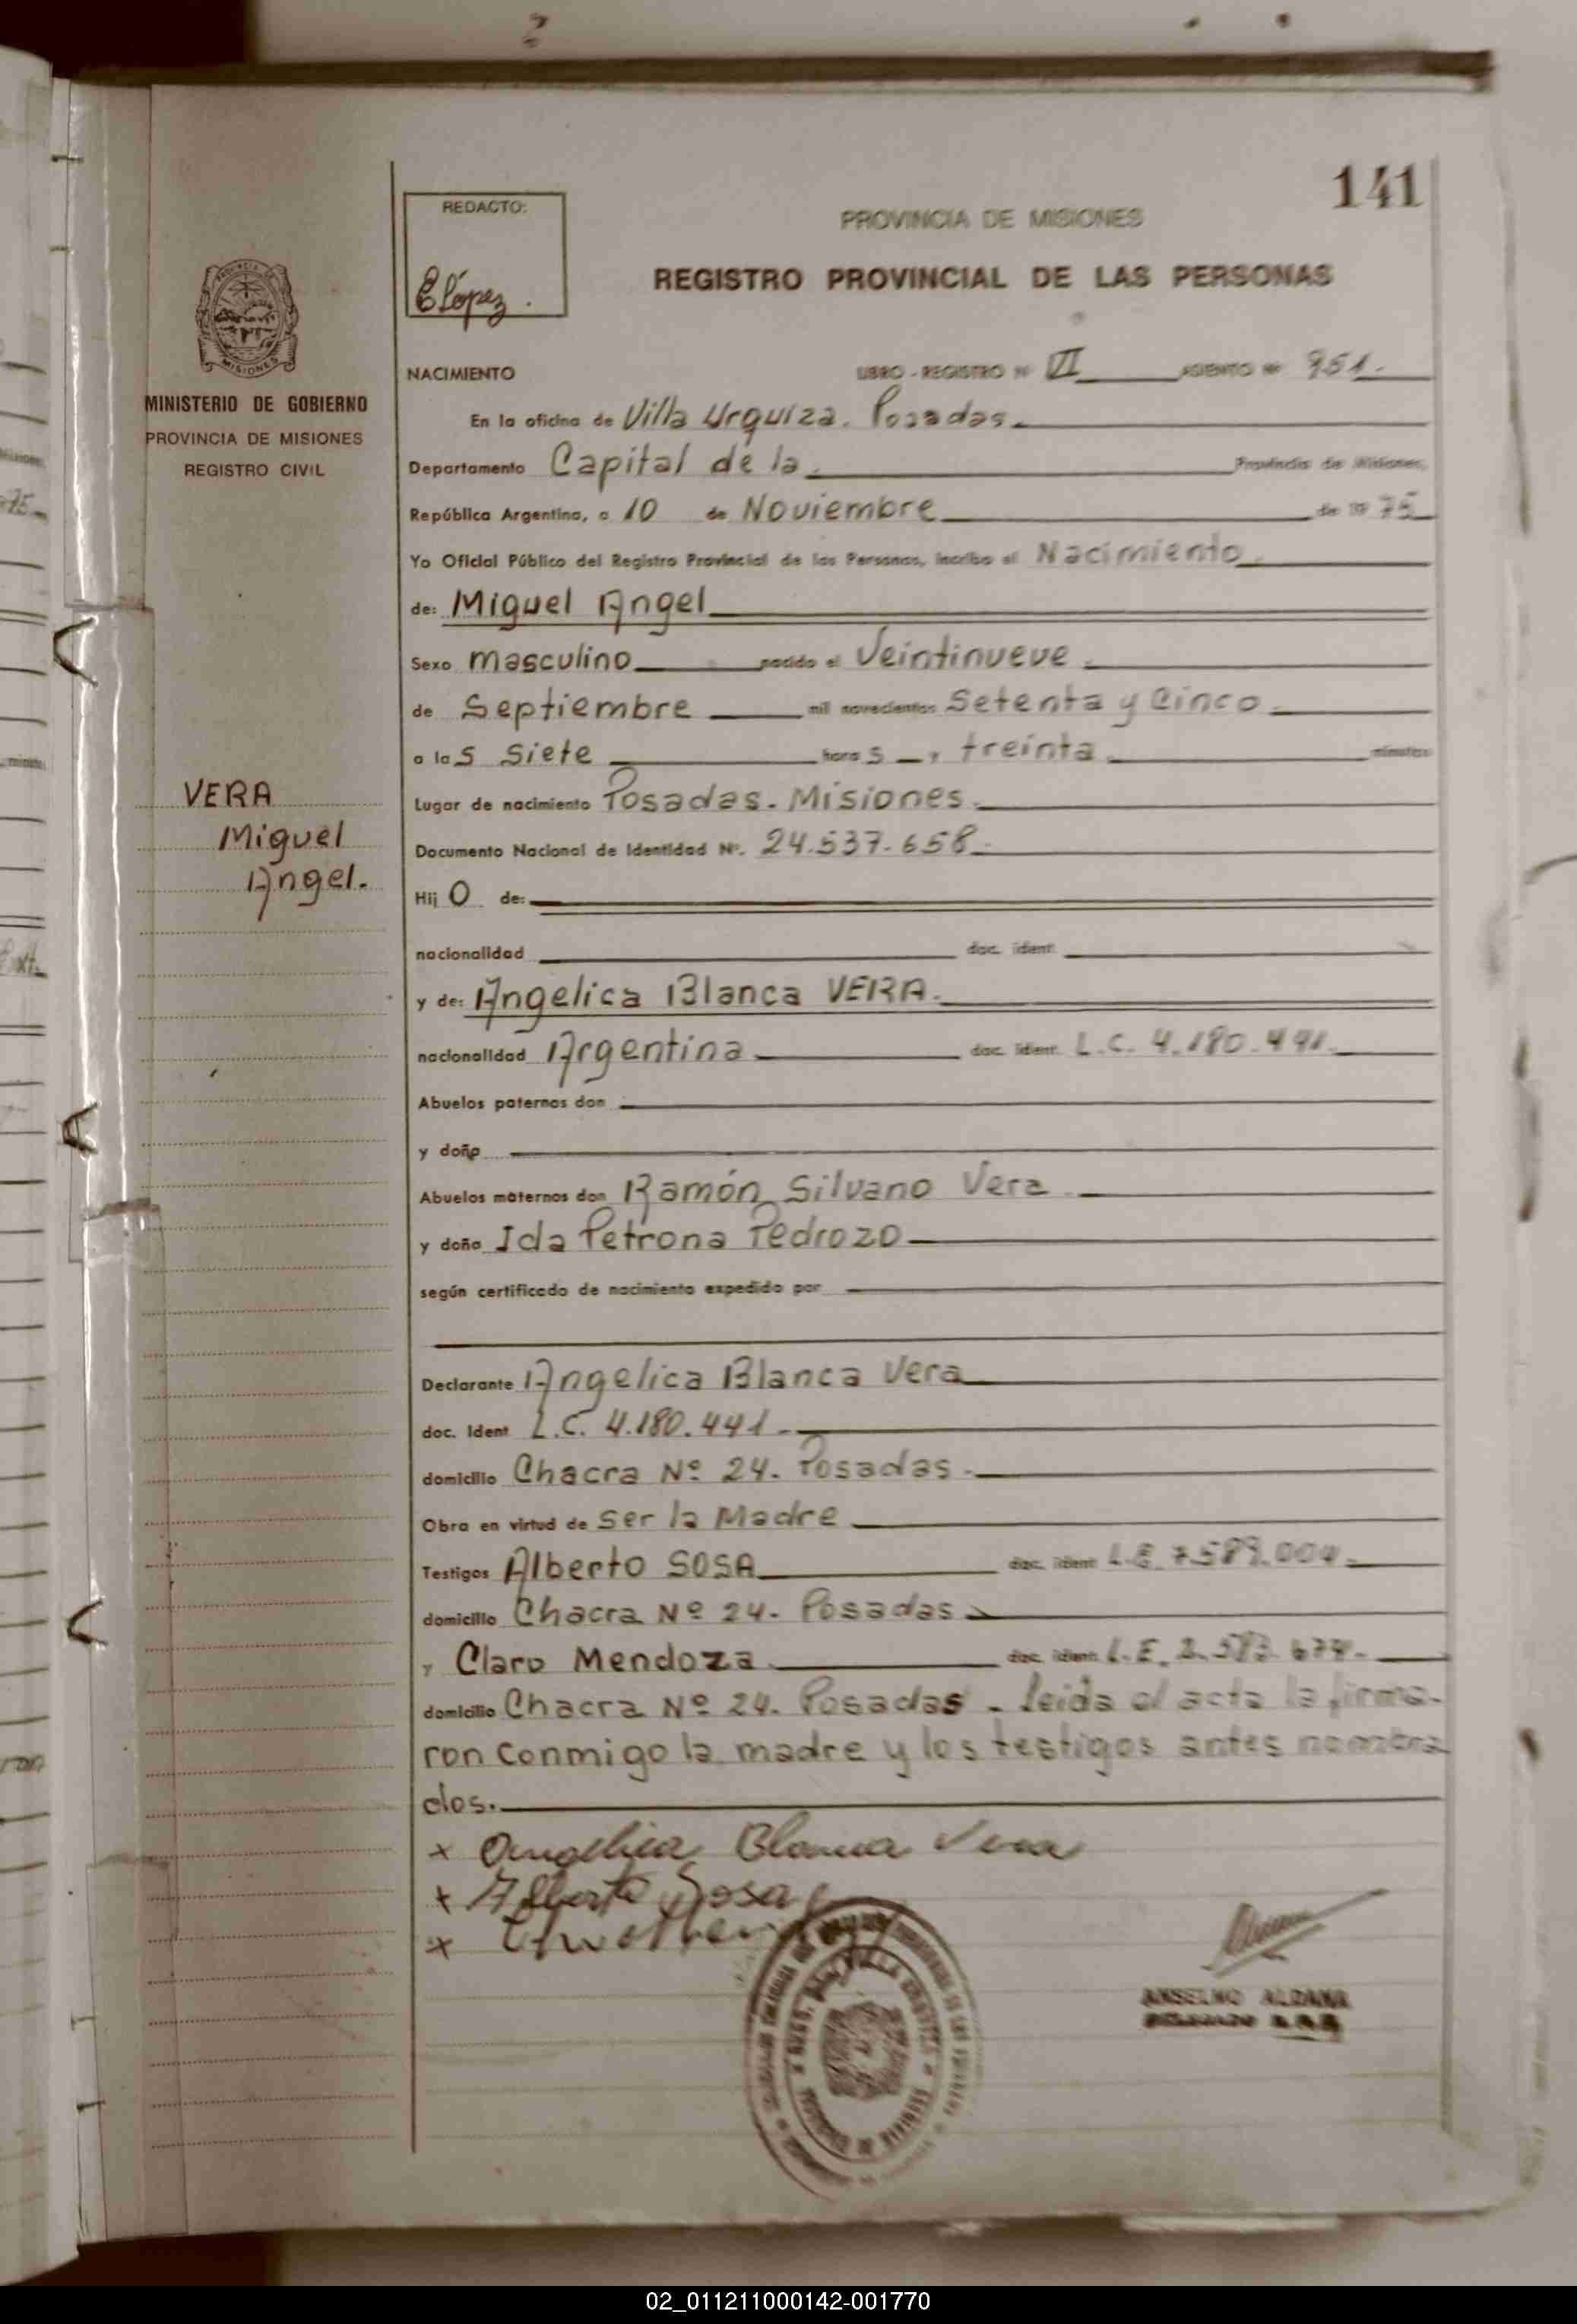 141
REDACTO:
ELópez.
PROVINCIA DE MISIONES
REGISTRO PROVINCIAL DE LAS PERSONAS
MINISTERIO DE GOBIERNO
PROVINCIA DE MISIONES
REGISTRO CIVIL
VERA
Miguel
Angel.
NACIMIENTO LIBRO - REGISTRO Nº VI ASIENTO Nº 951.
En la oficina de Villa Urquiza. Posadas.
Departamento Capital de la. Provincia de Misiones,
República Argentina, a 10 de Noviembre de 19 75
Yo Oficial Público del Registro Provincial de las Personas, inscribo el Nacimiento
de: Miguel Angel
Sexo masculino nacido el Veintinueve
de Septiembre mil novecientos Setenta y Cinco
a las Siete horas y treinta minutos
Lugar de nacimiento Posadas. Misiones.
Documento Nacional de Identidad Nº. 24.537.658.
Hijo de:
nacionalidad doc. ident.
y de: Angelica Blanca VERA.
nacionalidad Argentina doc. ident. L.C. 4.180.441.
Abuelos paternos don
y doña
Abuelos maternos don Ramón Silvano Vera
y doña Ida Petrona Pedrozo
según certificado de nacimiento expedido por
Declarante Angelica Blanca Vera
doc. Ident L.C. 4.180.441.
domicilio Chacra Nº 24. Posadas.
Obra en virtud de Ser la Madre
Testigos Alberto SOSA doc. ident L.E. 7.589.004.
domicilio Chacra Nº 24. Posadas
y Claro Mendoza doc. ident. L.E.
domicilio Chacra Nº 24. Posadas - Leida el acta la firma-
ron conmigo la madre y los testigos antes nombra
dos.
x Angelica Blanca Vera
x Alberto Sosa
x
ANSELMO ALDANA
DELEGADO
02_011211000142-001770